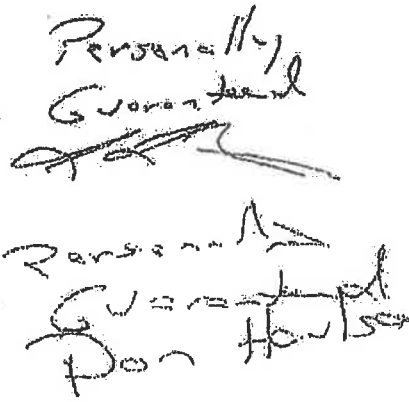 Personally
Guaranteed
Personally
Guaranteed
Don